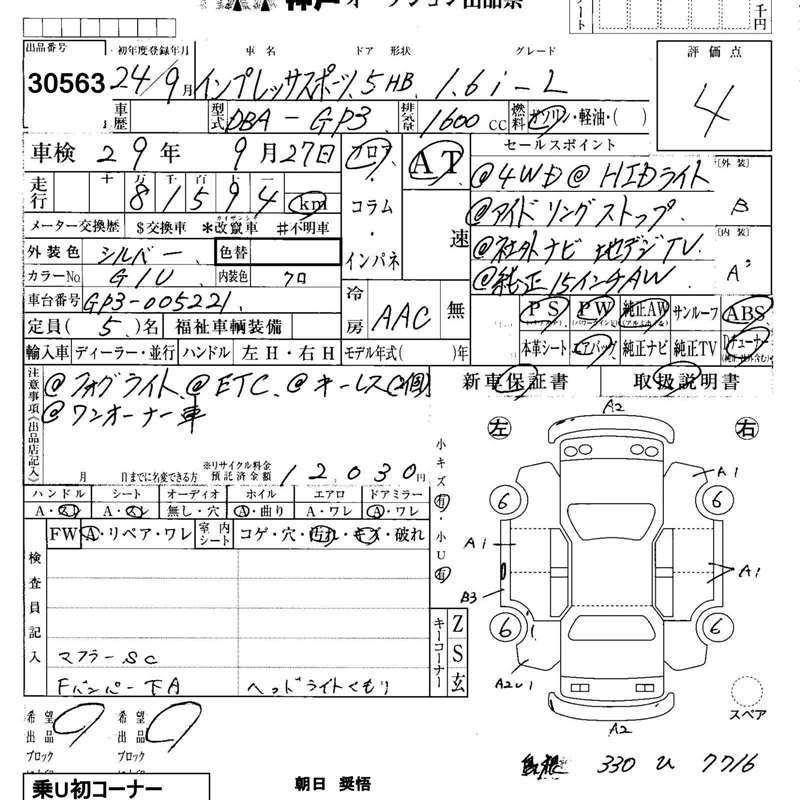 神戸オークション出品票
出品番号 初年度登録年月 車名 ドア 形状 グレード 評価点
30563 24/9月 インプレッサスポーツ 5 HB 1.6i-L 4
車歴 型式 DBA-GP3 排気量 1600 CC 燃料 ガソリン・軽油・( )
車検 29年 9月27日 フロア AT セールスポイント
走行 十 万 千 百 十 81594 km ・コラム・インパネ 速
@4WD @HIDライト [外装] B
@アイドリングストップ
@社外ナビ 地デジTV [内装] A'
@純正15インチAW
メーター交換歴 $交換車 *改竄車 #不明車
外装色 シルバー 色替
カラーNo. G1U 内装色 クロ
車台番号 GP3-005221
冷房 AAC 無
PS PW 純正AW サンルーフ ABS
定員(5)名 福祉車輌装備
本革シート エアバッグ 純正ナビ 純正TV Dチューナー
輸入車 ディーラー・並行 ハンドル 左H・右H モデル年式( )年
注意事項《出品店記入》 @フォグライト @ETC @キーレス(2個)
新車保証書 取扱説明書
@ワンオーナー車
月 日までに名変できる方 ※リサイクル料金預託済金額 12,030円
ハンドル シート オーディオ ホイル エアロ ドアミラー
A・スレ A・スレ 無し・穴 A・曲り A・ワレ A・ワレ
FW A・リペア・ワレ 室内シート コゲ・穴・汚れ・キズ・破れ
小キズ有・小U有
検査員記入
マフラーSC
Fバンパー下A ヘッドライトくもり
キーコーナー Z S 玄
左 右
A2
A1
6 6
A1 A1
B3
6 6
A2U1
A2
スペア
希望出品ブロック 希望出品ブロック
島根 330 ひ 7716
乗U初コーナー 朝日 奨悟